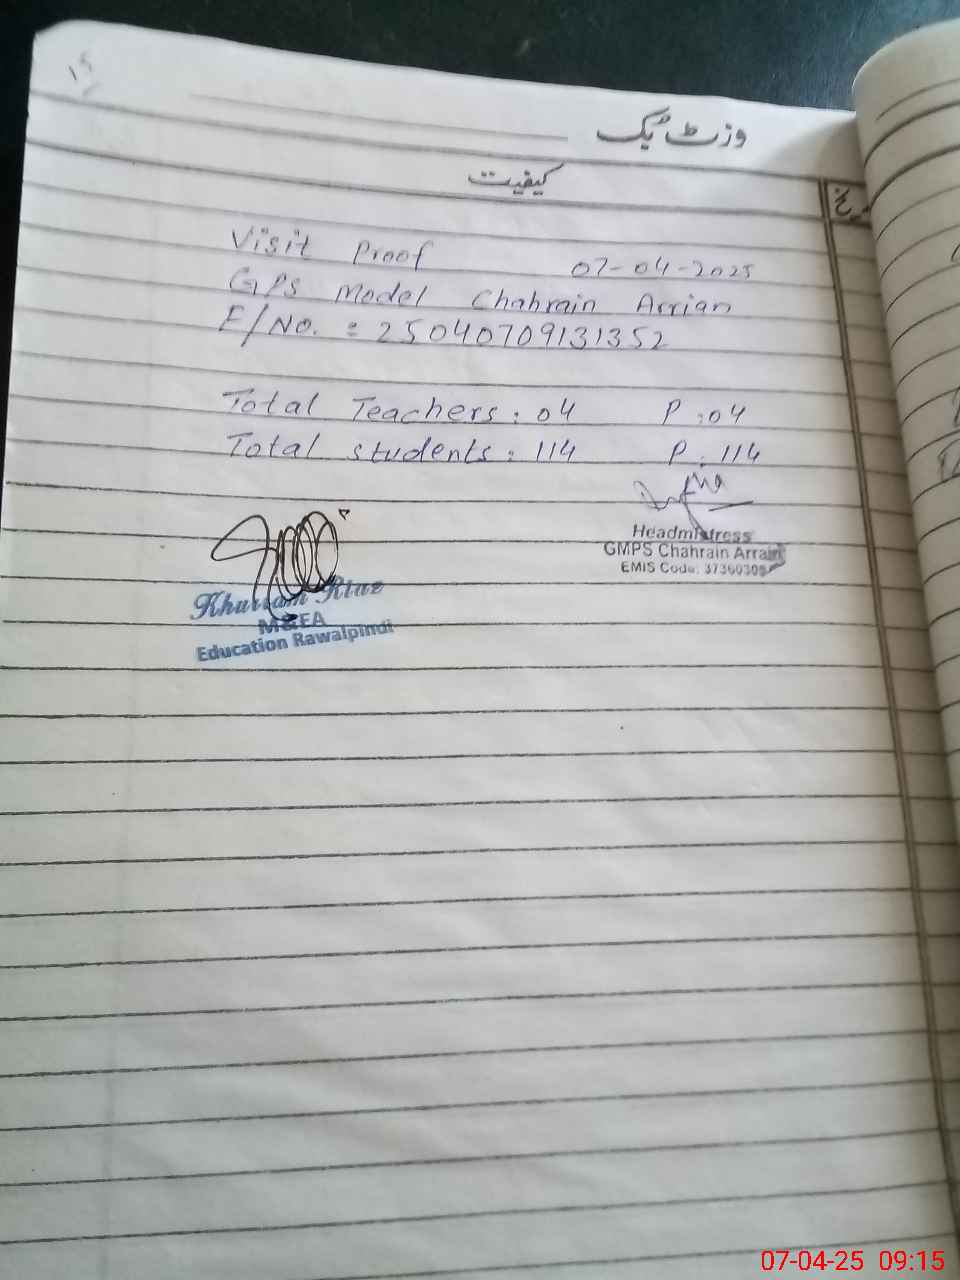 ۱۹
وزٹ بک
کیفیت
Visit Proof 07-04-2025
GPS Model Chahrain Arrian
F/No. : 25040709131352
Total Teachers: 04 P: 04
Total students: 114 P. 114
Headmistress
GMPS Chahrain Arrain
EMIS Code:
Khurram Riaz
M&EA
Education Rawalpindi
07-04-25 09:15